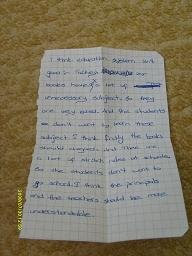 I think education system isn't
good in Turkey. our
books have lot of
unnecessary subject. So they
are very bored. And the students
don't want to learn these
subject. I think firstly the books
should changed. And There are
a lot of strict rules at schools.
So the students don't want to
go school. I think the principals
and the teachers should be more
understandable.